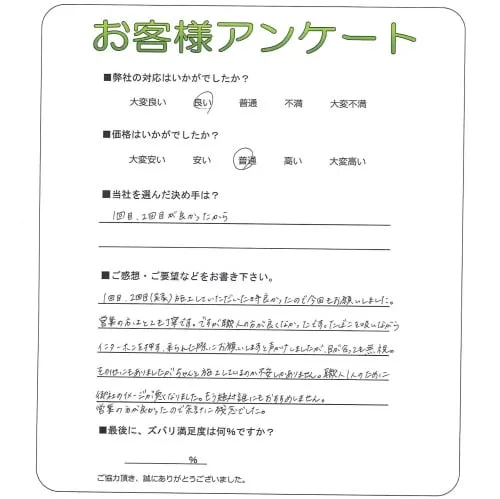 お客様アンケート
■弊社の対応はいかがでしたか？
大変良い 良い 普通 不満 大変不満
■価格はいかがでしたか？
大変安い 安い 普通 高い 大変高い
■当社を選んだ決め手は？
1回目、2回目が良かったから
■ご感想・ご要望などをお書き下さい。
1回目、2回目(実家)施工していただいた時良かったので今回もお願いしました。
営業の方はとても丁寧です。ですが職人の方が良くなかったです。たばこを吸いながら
インターホンを押す、来られた際にお願いしますと声かけしましたが、目が合っても無視。
その他にもありましたがちゃんと施工しているのか不安しかありません。職人1人のために
御社のイメージが悪くなりました。もう絶対誰にもおすすめしません。
営業の方が良かったので余計に残念でした。
■最後に、ズバリ満足度は何%ですか？
%
ご協力頂き、誠にありがとうございました。